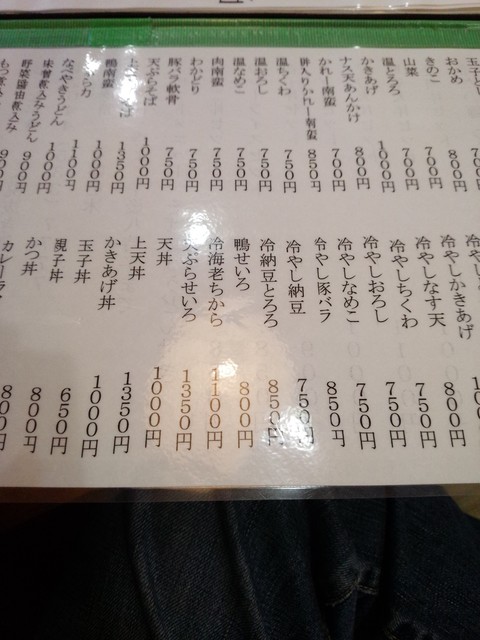 玉子とじ
おかめ 700円
きのこ 800円
山菜 700円
温とろろ 700円
かきあげ 1000円
ナス天あんかけ 800円
かれー南蛮 700円
餅入りかれー南蛮 850円
温ちくわ 750円
温おろし 750円
温なめこ 750円
肉南蛮 750円
わかどり 750円
豚バラ軟骨 750円
天ぷらそば 1000円
上天ぷらそば 1350円
鴨南蛮 1000円
力 1100円
なべやきうどん 1000円
味噌煮込みうどん 900円
野菜醤油煮込み 900円
もつ煮
冷やし
冷やしかきあげ 100
冷やしなす天 800円
冷やしちくわ 750円
冷やしおろし 750円
冷やしなめこ 750円
冷やし豚バラ 850円
冷やし納豆 750円
冷納豆とろろ 850円
鴨せいろ 800円
冷海老ちから 1100円
天ぷらせいろ 1350円
天丼 1000円
上天丼 1350円
かきあげ丼 1000円
玉子丼 650円
親子丼 800円
かつ丼 800円
カレーライス